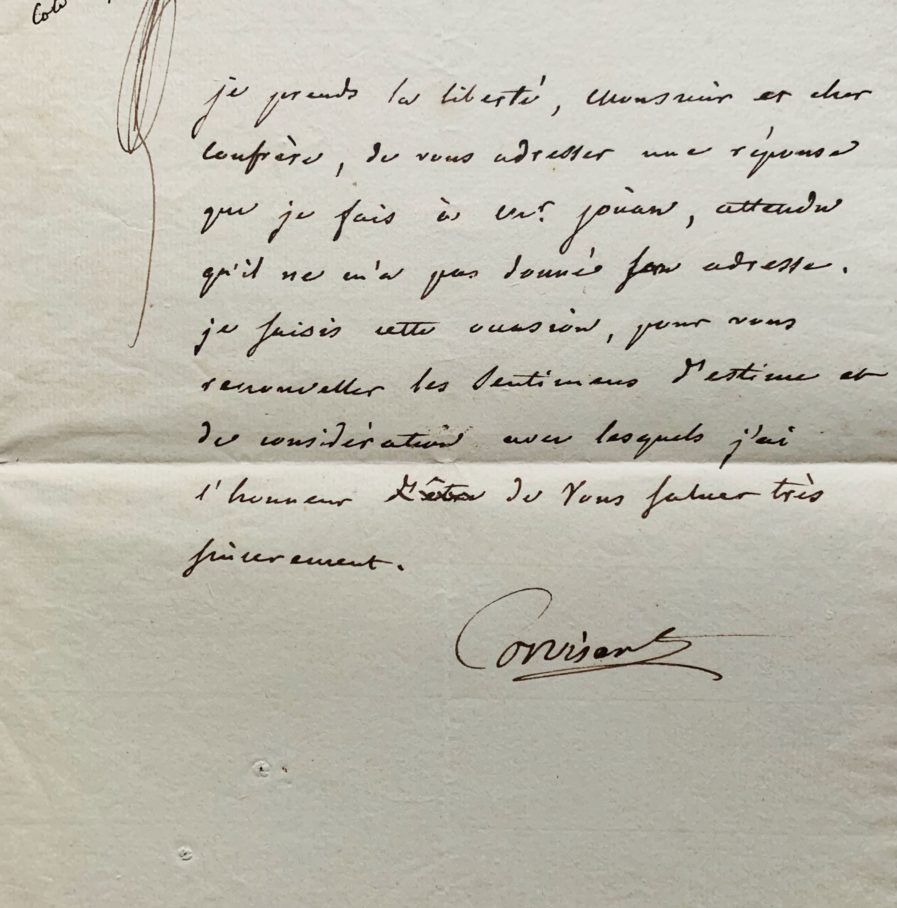 je prends la liberté, Monsieur et cher
confrère, de vous adresser une réponse
que je fais à Mr. joüan, attendu
qu'il ne m'a pas donné son adresse.
je saisis cette occasion, pour vous
renouveller les Sentimens d'estime et
de considération avec lesquels j'ai
l'honneur d'être de Vous saluer très
sincerement.
Corvisart